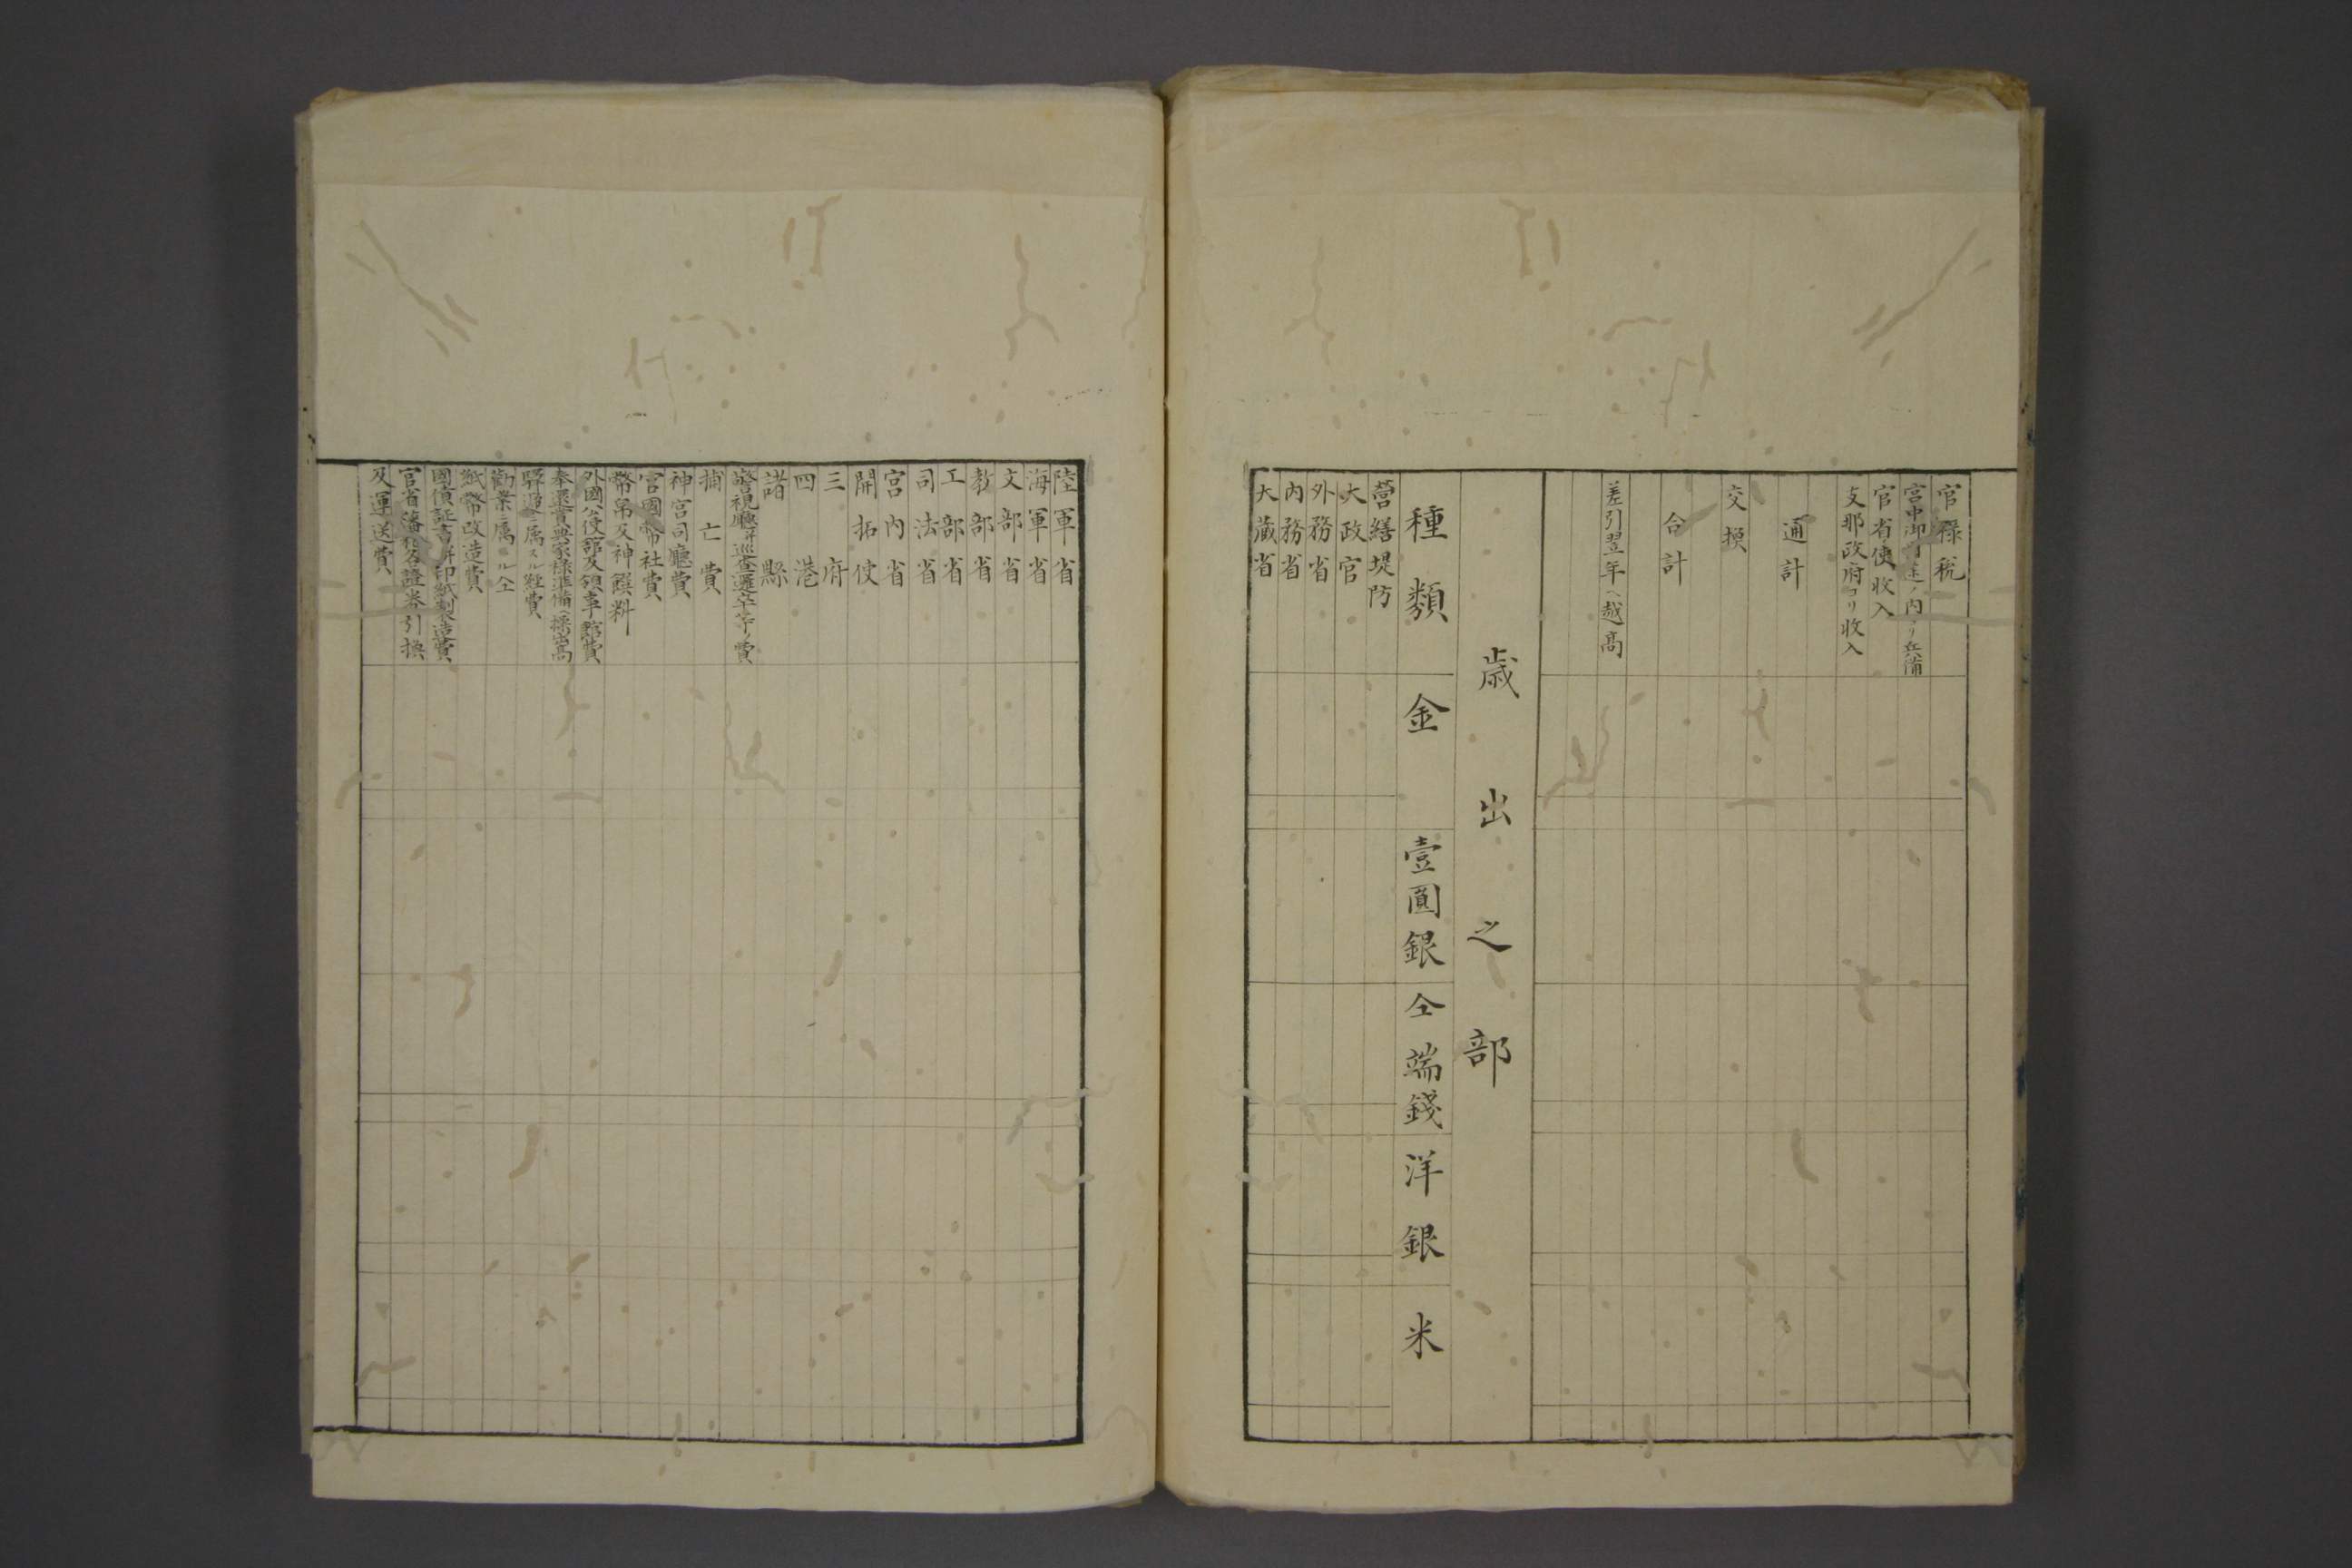 官祿税
宮中御用途ノ内ヨリ兵備
官省使收入
支那政府ヨリ收入
通計
交換
合計
差引翌年ヘ越高
歳出之部
種類 金 壹圓銀 仝端錢 洋銀 米
營繕堤防
大政官
外務省
内務省
大蔵省
陸軍省
海軍省
文部省
教部省
工部省
司法省
宮内省
開拓使
三府
四港
諸縣
警視廳并巡査邏卒等ノ費
捕亡費
神宮司廳費
官國幣社費
幣帛及神饌料
外國公使館及領事館費
奉還賞典家祿準備ヘ操出高
驛逓ニ属スル經費
勸業ニ属スル仝
紙幣改造費
國債証書并印紙製造費
官省藩札各證券引換
及運送費